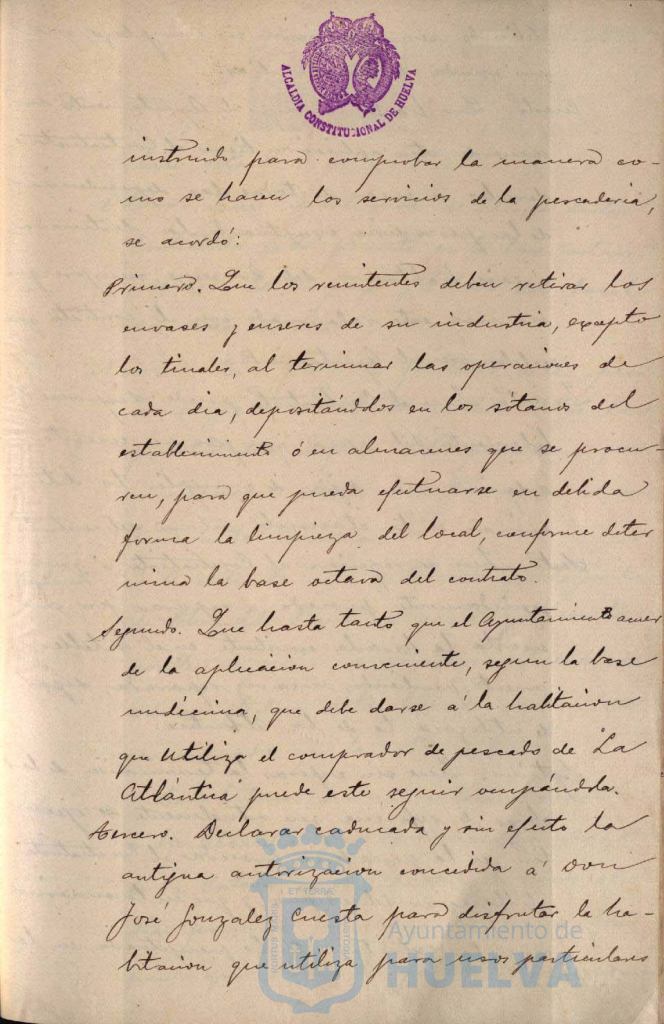 ALCALDIA CONSTITUCIONAL DE HUELVA
instruido para comprobar la manera co-
mo se hacen los servicios de la pescaderia,
se acordó:
Primero. Que los remitentes deben retirar los
envases y enseres de su industria, excepto
los tinales, al terminar las operaciones de
cada dia, depositándolos en los sótanos del
establecimiento ó en almacenes que se procu-
ren, para que pueda efectuarse en debida
forma la limpieza del local, conforme deter
mina la base octava del contrato.
Segundo. Que hasta tanto que el Ayuntamiento acuer
de la aplicación conveniente, segun la base
undécima, que debe darse á la habitacion
que utiliza el comprador de pescado de "La
Atlántica" puede este seguir ocupándola.
Tercero. Declarar caducada y sin efecto la
antigua autorizacion concedida á Don
José Gonzalez Cuesta para disfrutar la ha-
bitacion que utiliza para usos particulares
Ayuntamiento de
HUELVA